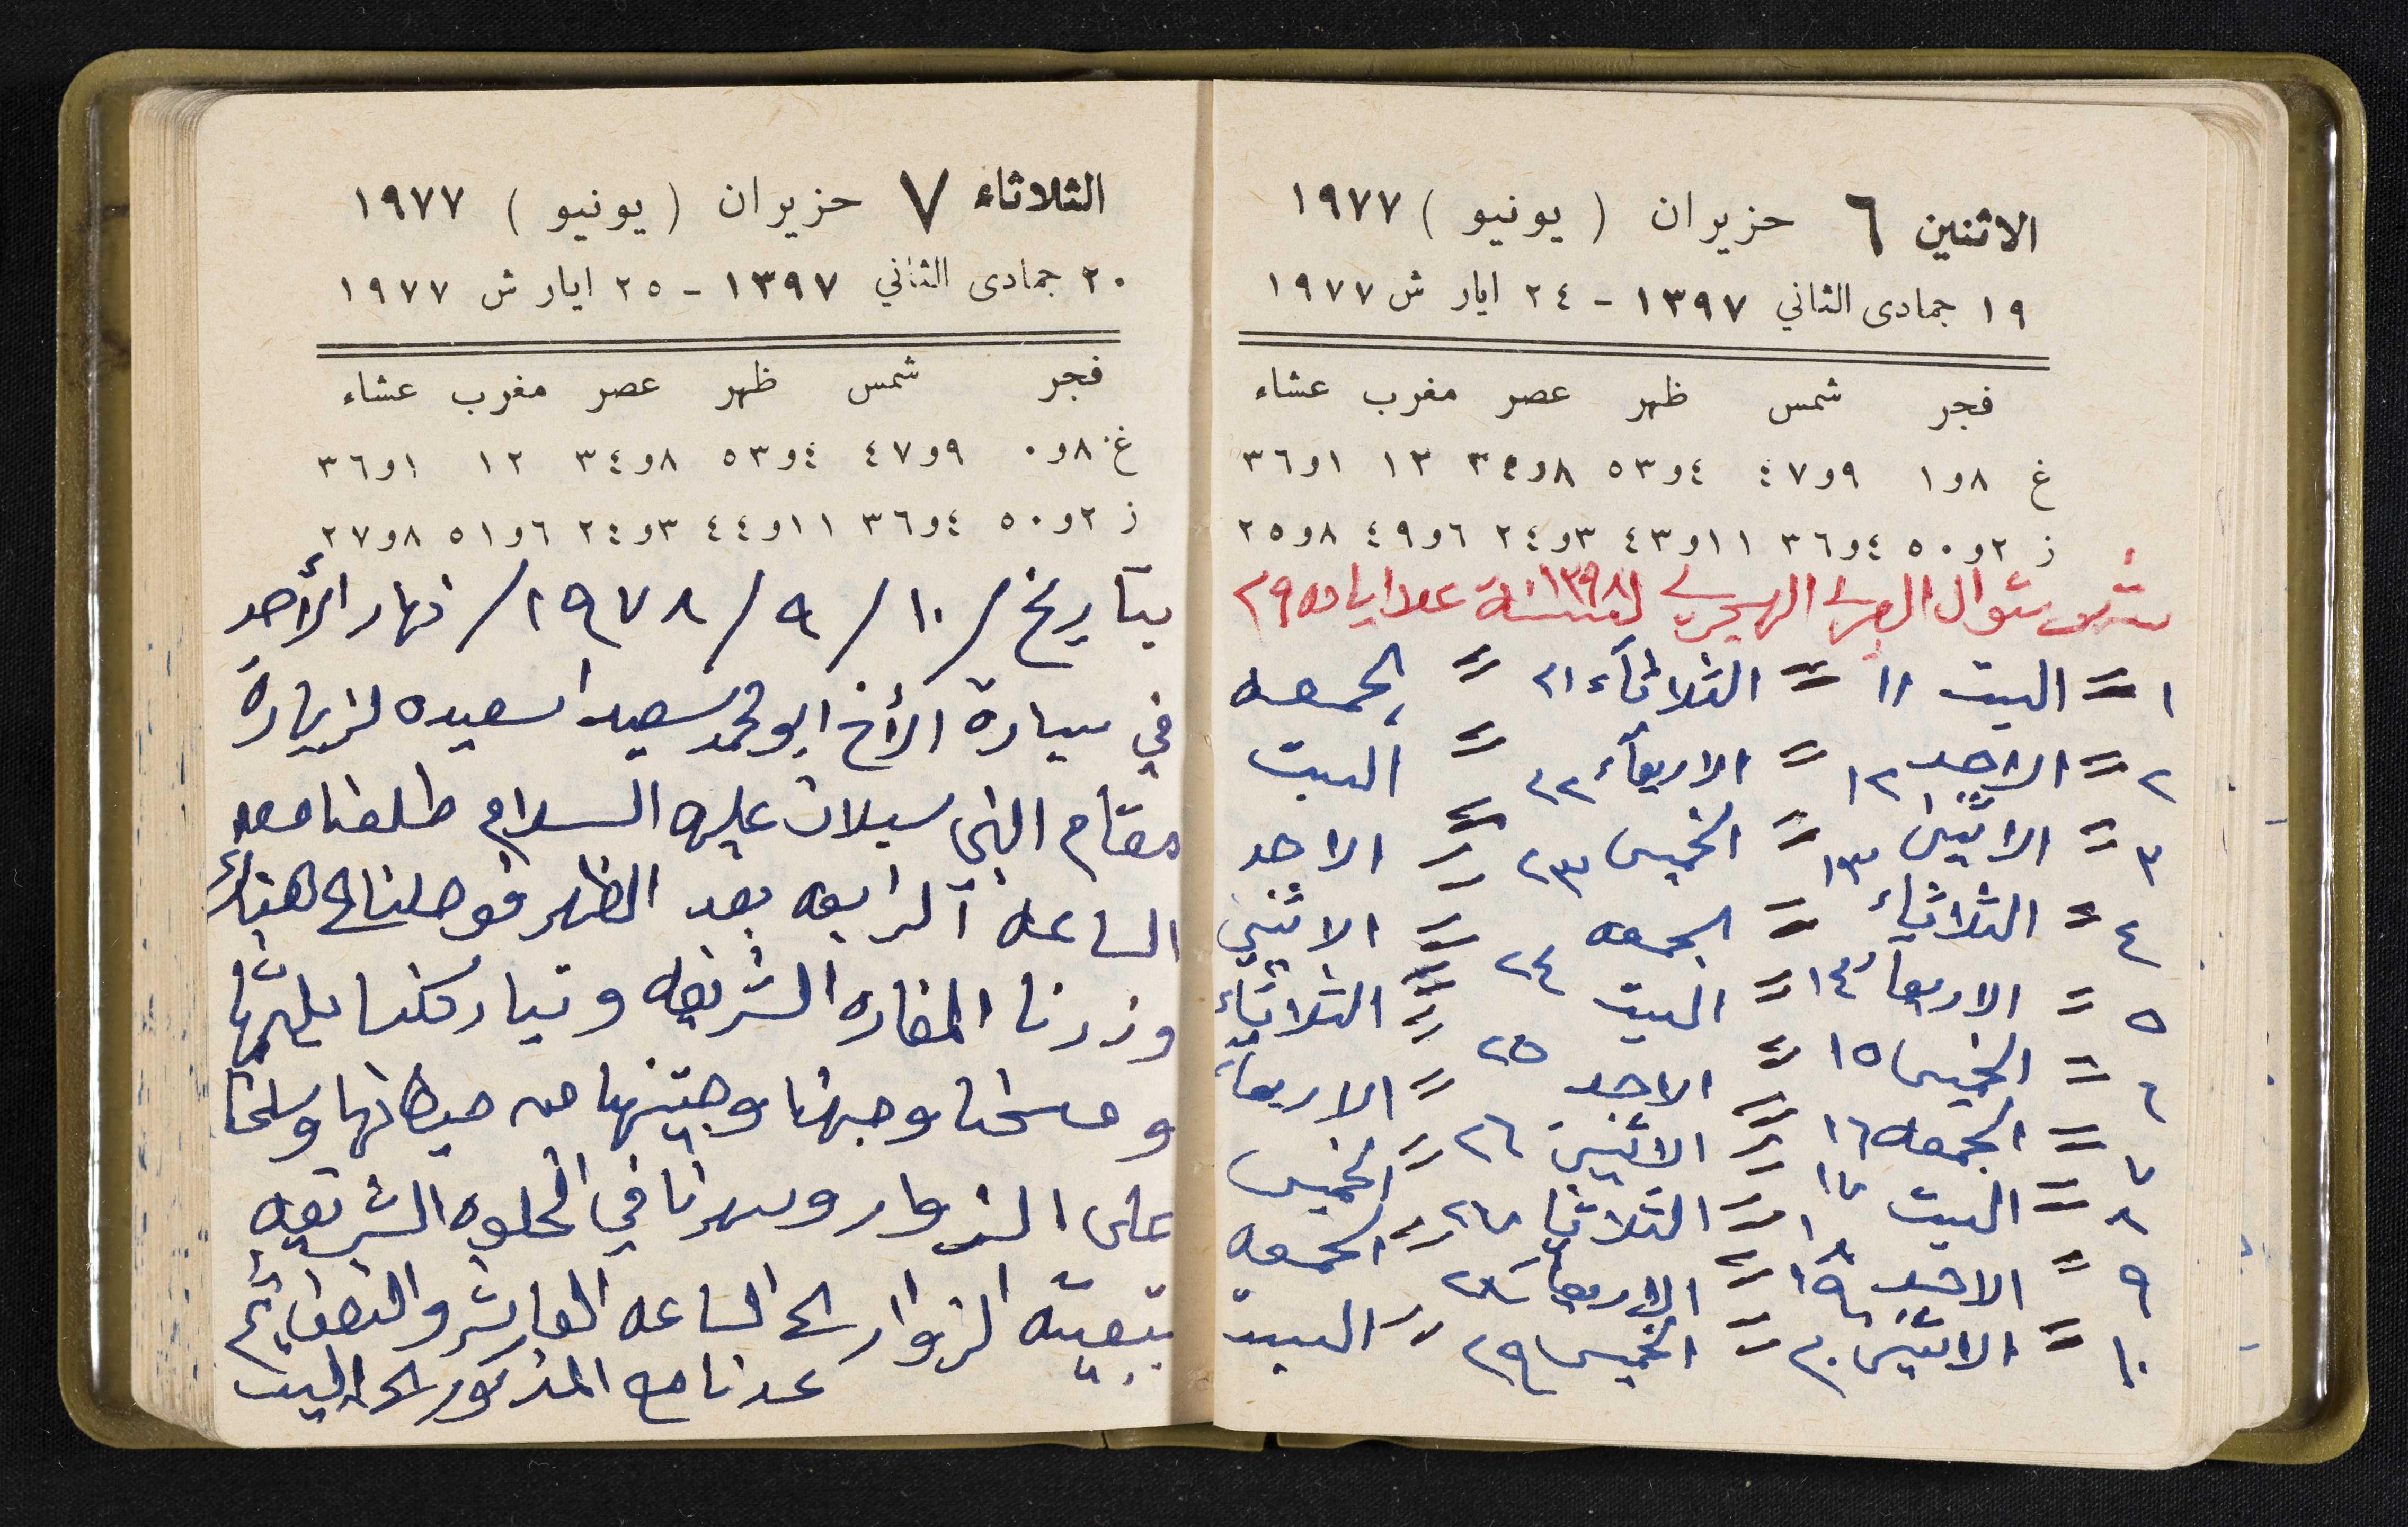 الاثنين ٦ حزيران ( يونيو ) ١٩٧٧
١٩ جمادى الثاني ١٣٩٧ - ٢٤ ايار ش ١٩٧٧
فجر شمس ظهر عصر مغرب عشاء
غ ٨و١ ٩و٤٧ ٤و٥٣ ٨و٣٤ ١٢ ١و٣٦
ز ٢و٥٠ ٤و٣٦ ١١و٤٣ ٣و٢٤ ٦و٤٩ ٨و٢٥
شهر شوال العربي الهجري لسنة ١٣٩٨ عدد ايامه ٢٩
١ = السبت ١١ = الثلاثاء ٢١ = الجمعه
٢ = الاحد ١٢ = الاربعاء ٢٢ = السبت
٣ = الاثنين ١٣ = الخميس ٢٣ = الاحد
٤ = الثلاثاء ١٤ = الجمعه ٢٤ = الاثنين
٥ = الاربعاء = السبت ٢٥ = الثلاثاء
٦ = الخميس ١٥ = الاحد = الاربعاء
٧ = الجمعه ١٦ = الاثنين ٢٦ = الخميس
٨ = السبت ١٧ = الثلاثاء ٢٧ = الجمعه
٩ = الاحد ١٨ ١٩ = الاربعاء ٢٨ = السبت
١٠ = الاثنين ٢٠ = الخميس ٢٩
الثلاثاء ٧ حزيران ( يونيو ) ١٩٧٧
٢٠ جمادى الثاني ١٣٩٧ - ٢٥ ايار ش ١٩٧٧
فجر شمس ظهر عصر مغرب عشاء
غ ٨و٠ ٩و٤٧ ٤و٥٣ ٨و٣٤ ١٢ ١و٣٦
ز ٢و٥٠ ٤و٣٦ ١١و٤٤ ٣و٢٤ ٦و٥١ ٨و٢٧
بتاريخ / ١٠ / ٩ / ١٩٧٨ / نهار الأحد
في سيارة الأخ ابو محمد سعيد اسعيده لزيارة
مقام النبي سبلان عليه السلام طلعنا معه
الساعه الرابعه بعد الظهر فوصلنا الى هناك
وزرنا المغاره الشريفه وتباركنا بلثمها
ومسحنا وجهنا من حيطانها وسلمنا
على الزوار وسهرنا في الخلوه الشريفه
بمعية الزوار الى الساعه العاشره والنصف ثم
عدنا مع المذكور الى البيت